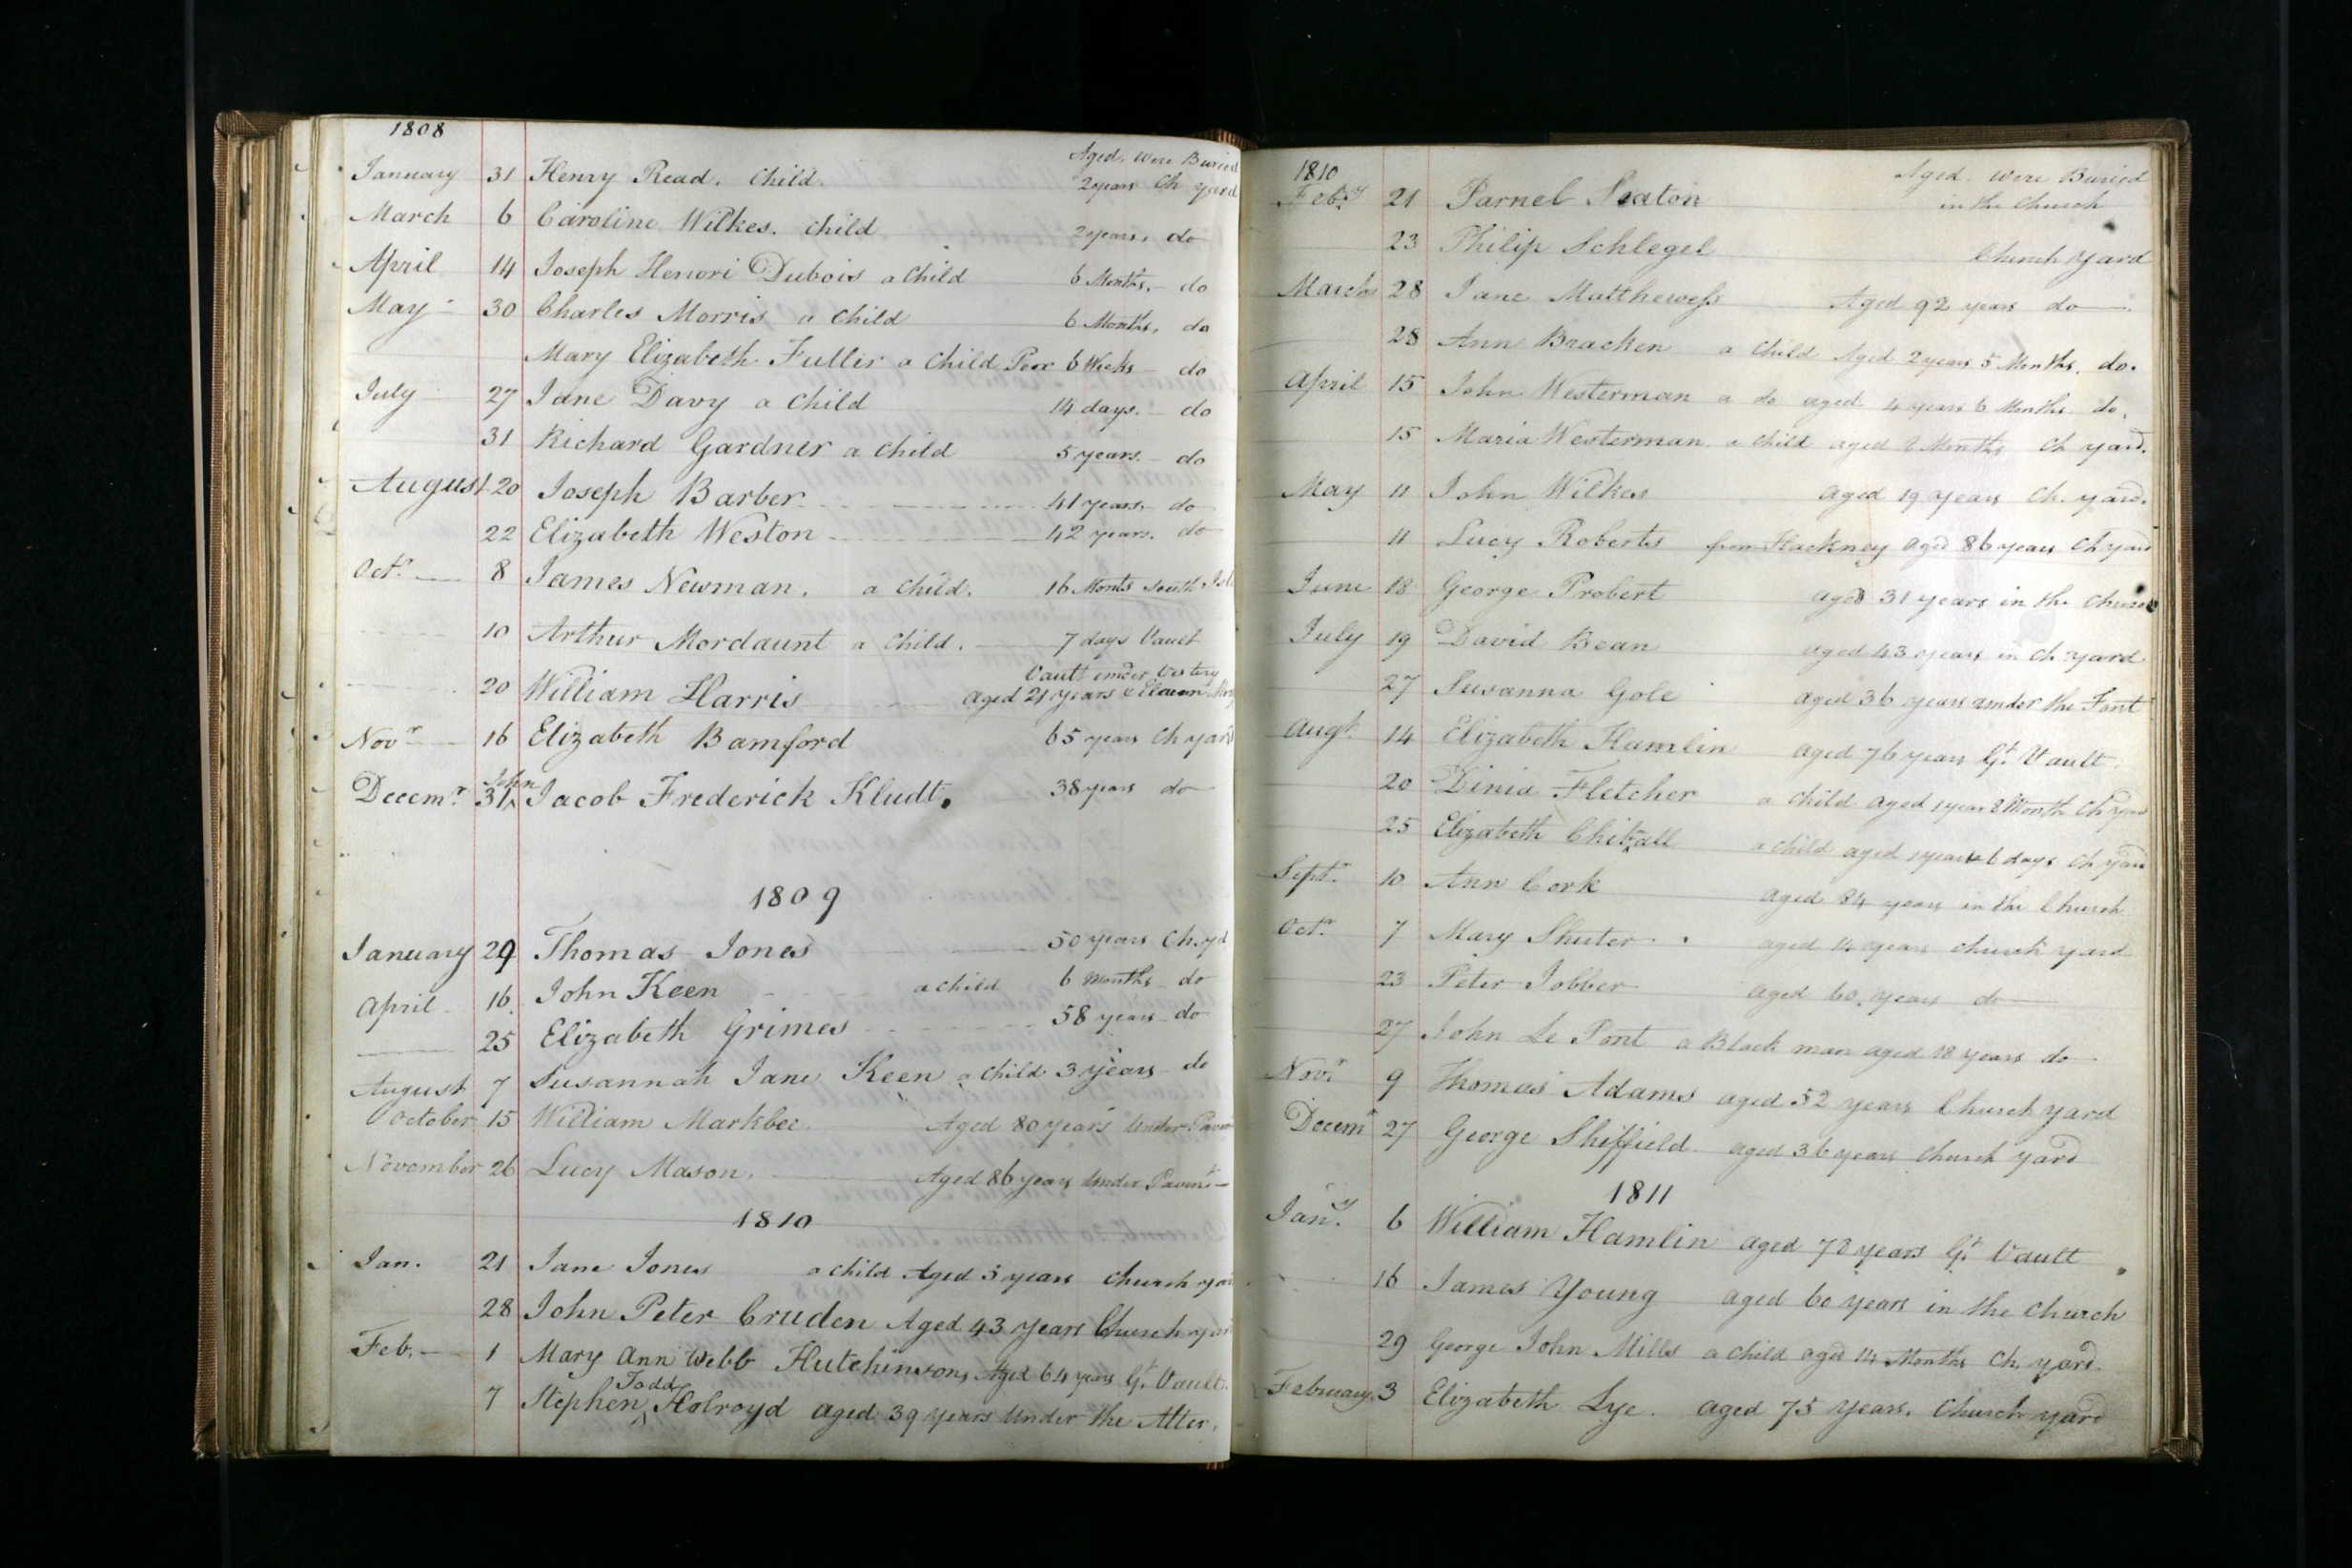 1808
Aged. were Buried
January 31 Henry Read. Child. 2 years Ch yard
March 6 Caroline Wilkes. Child 2 years, do
April 14 Joseph Henori Dubois a Child 6 Months, - do
May - 30 Charles Morris a Child 6 Months, do
Mary Elizabeth Fuller a Child 6 Weeks - do
July - 27 Jane Davy a Child 14 days. - do
31 Richard Gardner a Child 5 years. - do
August 20 Joseph Barber 41 years. - do
22 Elizabeth Weston 42 years. do
Octr. 8 James Newman. a Child. 16 Monts South
10 Arthur Mordaunt a Child. 7 days Vault
Vault under Vestry
20 William Harris aged 21 years &
Novr 16 Elizabeth Bamford 65 years Ch yard
John
Decemr. 31 Jacob Frederick Kludt. 38 years do
1809
January 29 Thomas Jones 50 years Ch. yd
April 16. John Keen a child 6 Months - do
25 Elizabeth Grimes 58 years - do
August 7 Susannah Jane Keen a child 3 years - do
October 15 William Markbee. Aged 80 years Under
November 26 Lucy Mason. Aged 86 years Under Pavemt
1810
Jan. 21 Jane Jones a child Aged 5 years Church yard
28 John Peter Cruden Aged 43 years Church yard
Feb. 1 Mary Ann Webb Hutchinson, Aged 64 years Gt. Vault.
Todd
7 Stephen Holroyd aged 39 years Under the Alter.
1810
Aged. were Buried
Feby. 21 Parnel Seaton in the Church
23 Philip Schlegel Church yard
March 28 Jane Matthewess Aged 92 years do
28 Ann Bracken a Child Aged 2 years 5 Months. do.
April 15 John Westerman a do aged 4 years 6 Months do.
15 Maria Westerman a child aged Months Ch yard.
May 11 John Wilkes aged 19 years Ch. yard.
11 Lucy Roberts from Hackney aged 86 years Ch yard
June 18 George Probert aged 31 years in the Church
July 19 David Bean aged 43 years in Ch. yard
27 Susanna Gole aged 36 years under the Font
Augt. 14 Elizabeth Hamlin aged 76 years Gt. Vault.
20 Dinia Fletcher a child aged 1 year 8 Month Ch yard
25 Elizabeth a child aged 1 year 6 days Ch yard
Septr. 10 Ann Cork aged 84 years in the Church
Octr. 7 Mary Shuter. aged 14 years Church yard
23 Peter Jobber aged 60. years do
27 John Le Pont a Black man aged 18 years do
Novr. 9 Thomas Adams aged 52 years Church yard
Decemr 27 George Sheffield. aged 36 years Church yard
1811
Jany. 6 William Hamlin aged 78 years Gt. Vault
16 James Young aged 60 years in the Church
29 George John Mills a child aged 14 Months Ch. yard.
February. 3 Elizabeth Lye. aged 75 years. Church yard